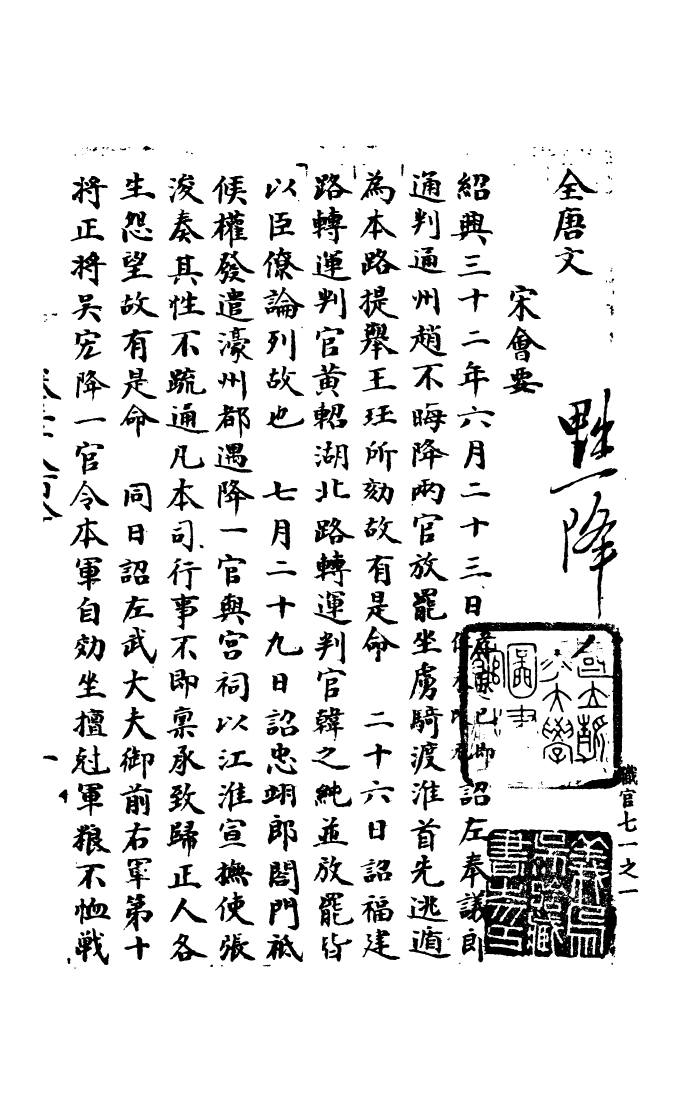 全唐文
宋會要
黜降
紹興三十二年六月二十三日孝宗已即位未改元詔左奉議郎
通判通州趙不晦降兩官放罷坐虜騎渡淮首先逃遁
為本路提舉王珏所劾故有是命 二十六日詔福建
路轉運判官黃軺湖北路轉運判官韓之純並放罷皆
以臣僚論列故也 七月二十九日詔忠翊郎閤門祗
候權發遣濠州都遇降一官與宮祠以江淮宣撫使張
浚奏其性不疏通凡本司行事不即稟承致歸正人各
生怨望故有是命 同日詔左武大夫御前右軍第十
將正將吳宏降一官令本軍自効坐擅尅軍粮不恤戰
職官七一之一